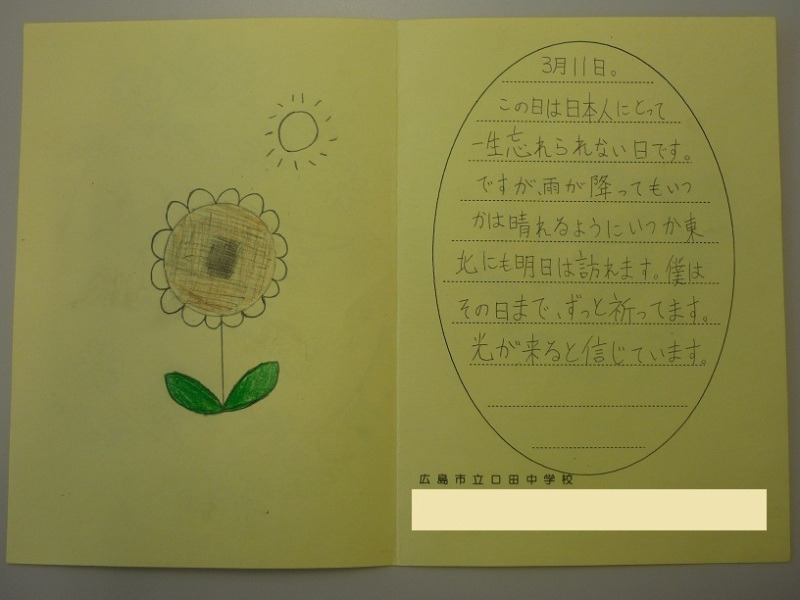 3月11日。
この日は日本人にとって
一生忘れられない日です。
ですが、雨が降ってもいつ
かは晴れるようにいつか東
北にも明日は訪れます。僕は
その日まで、ずっと祈ってます。
光が来ると信じています。
広島市立口田中学校